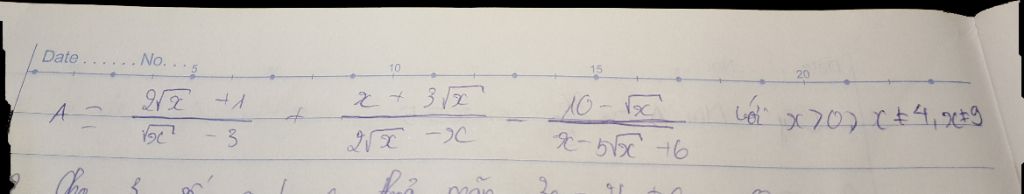 Date ...... No. ... 5 10 15 20
A = (2√x + 1)/(√x - 3) + (x + 3√x)/(2√x - x) - (10 - √x)/(x - 5√x + 6) với x > 0, x ≠ 4, x ≠ 9